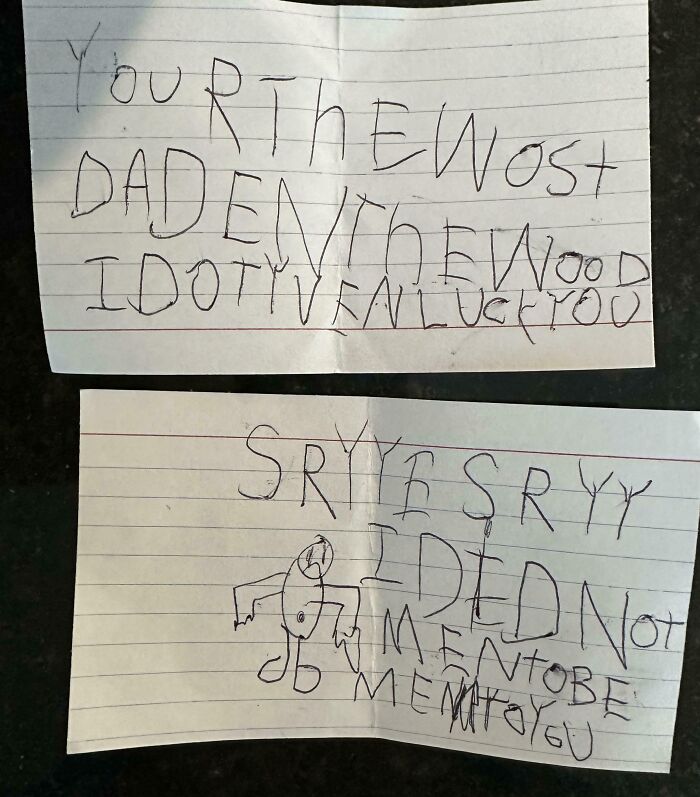 YOU R THE WOST
DAD EN THE WOOD
I DOT YVEN LUCK YOU
SRYYE SRYY
I DED NOT
MEN TO BE
MEN TO YOU